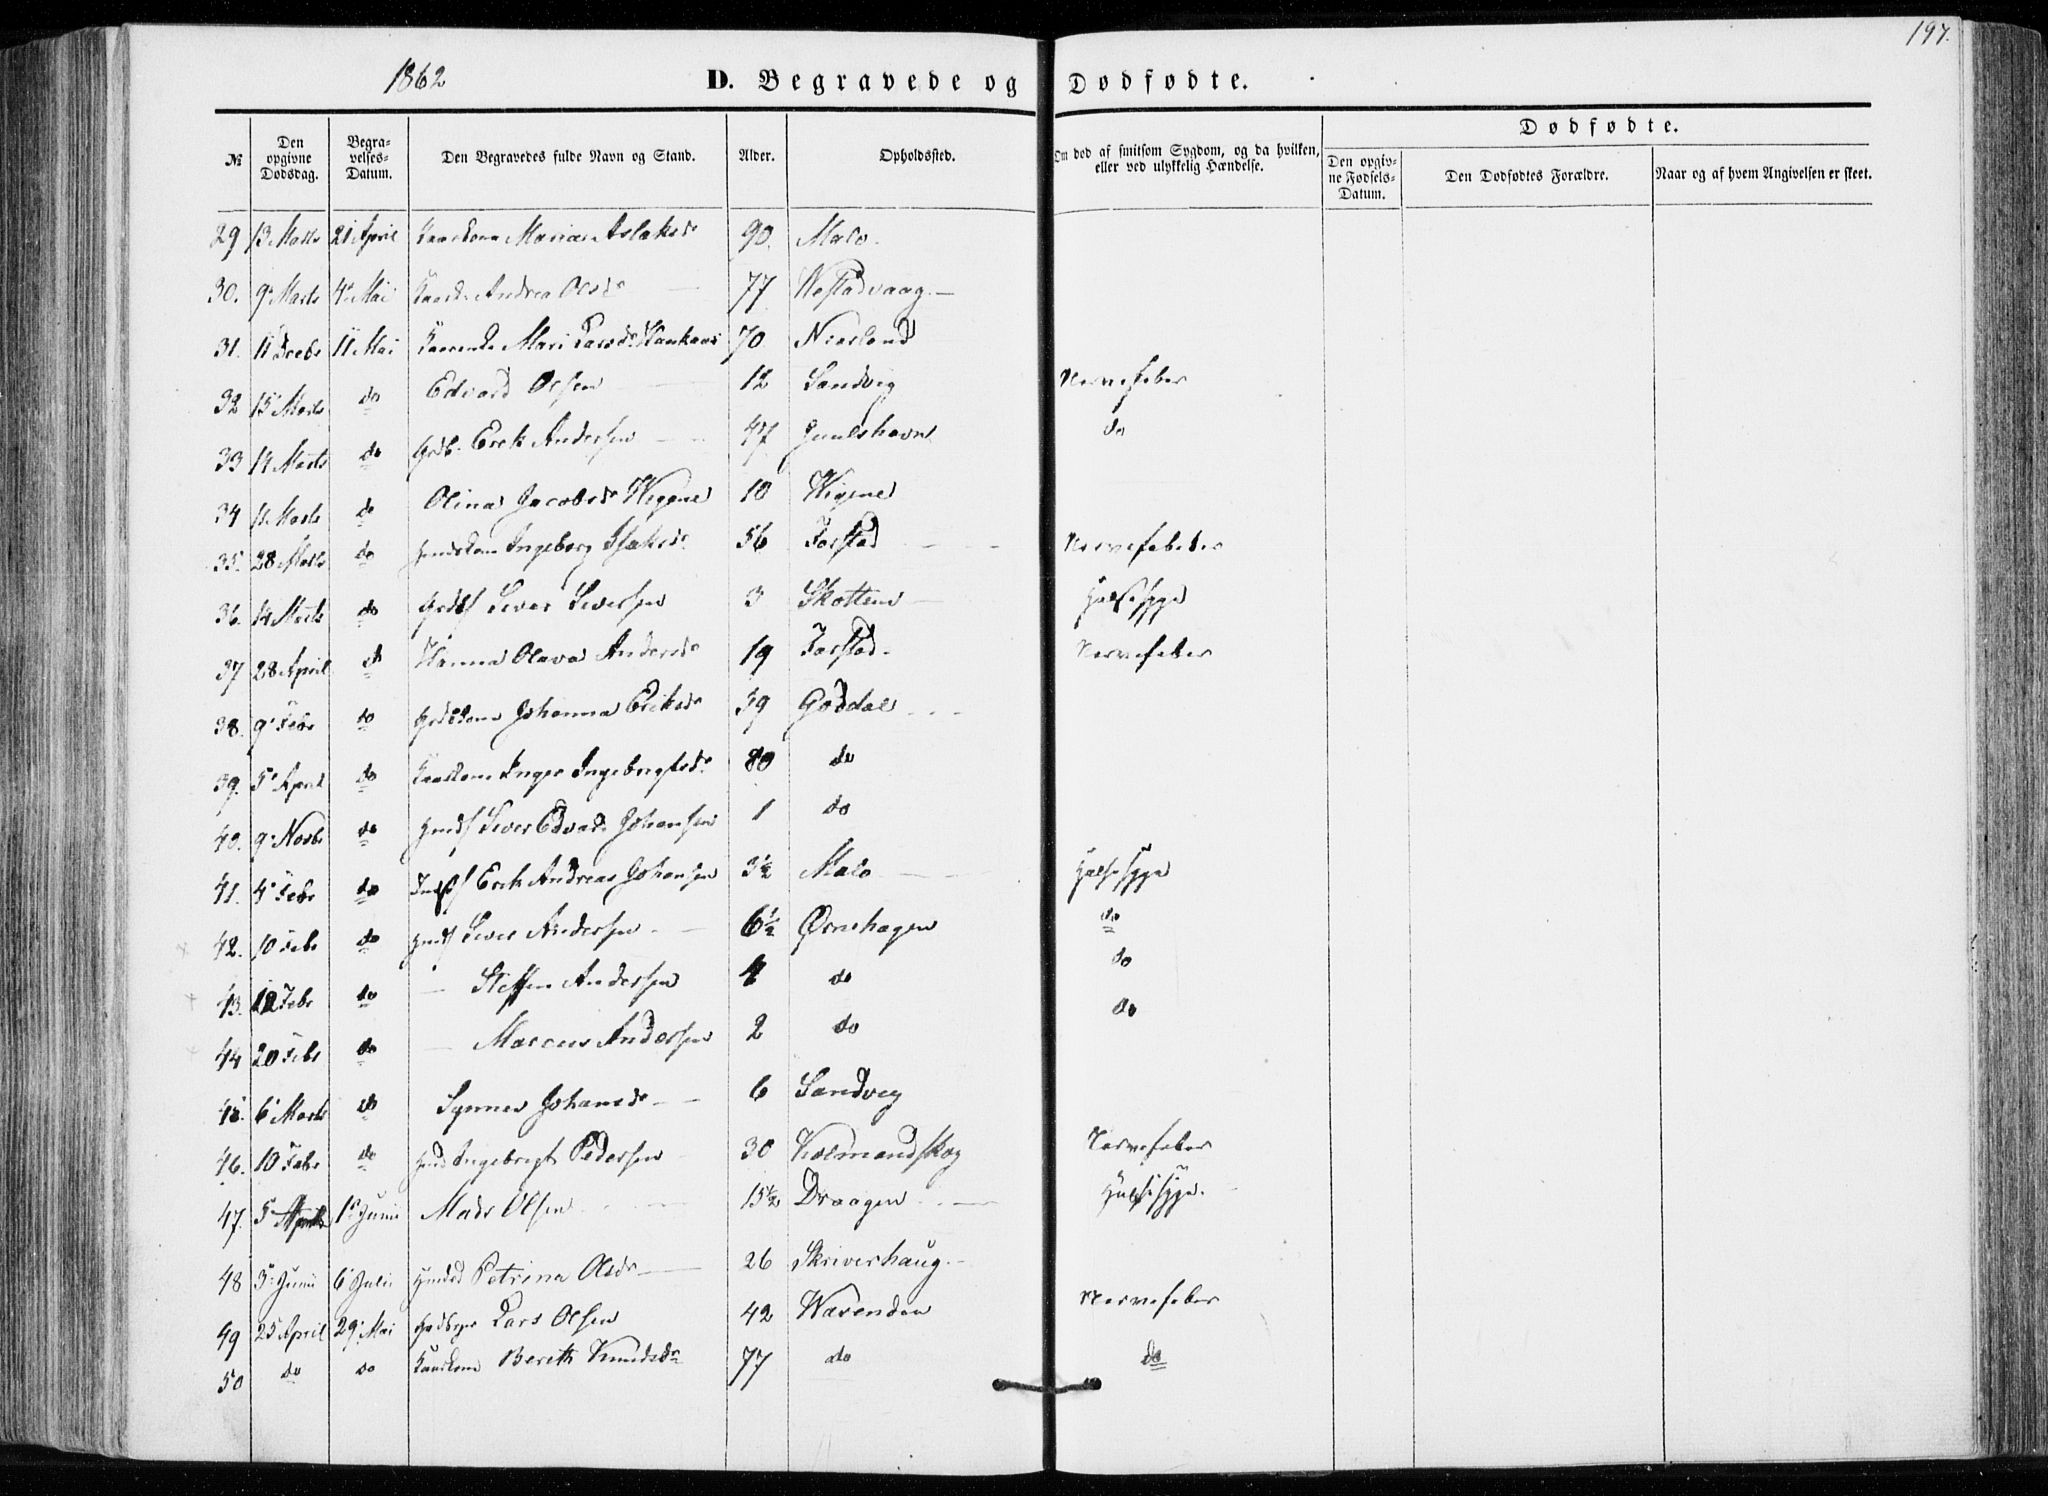 197.
1862 D. Begravede og Dødfødte.
№ Den opgivne Dødsdag. Begravelses-Datum. Den Begravedes fulde Navn og Stand. Alder. Opholdssted. Om død af smitsom Sygdom, og da hvilken, eller ved ulykkelig Hændelse. Dødfødte. Den opgivne Fødsels-Datum. Den Dødfødtes Forældre. Naar og af hvem Angivelsen er skeet.
29 13 Marts 21 April Kaarkone Marian Aslaksdr 90. Malo.
30. 9 Marts 4 Mai Andrea Olsdr 77 Nestadvaag
31. 11 11 Mai Mari Larsdr 70 Nierland
32 15 Marts do Edvard Olsen 12 Sandvig Nervefeber
33 14 Marts do Grdb. Erik Andersen 47 Juulshavn do
34 11 Marts do Olina Jacobsdr Wigene 10 Wigene
35. 28 Marts do Ingeborg Isaksdr 56 Forstad Nervefeber
36. 14 Marts do Siver Siversen 3 Skotten Halssyge
37 28 April do Hanna Olava Andersdr 19 Forstad Nervefeber
38. 9 Febr do Johanna Eriksdr 39 Goddal
39. 5 April do Kaarkone Inger Ingebrigtsdr 80 do
40. 9 do Siver Edvard Johansen 1 do
41. 4 Febr do Erik Andreas Johansen 3½ Malo Halssyge
42. 10 Febr do Siver Andersen 6½ Ørnehagen do
43. 12 Febr do — Steffen Andersen 4 do do
44 20 Febr do — Marcus Andersen 2 do do
45. 6 Marts do Synnev Johansdr 6 Sandvig
46. 10 Febr do Ingebrigt Pedersen 30 Kolmandskog Nervefeber
47. 5 April 1 Juni Mads Olsen 15½ Draagen Halssyge.
48 3 Juni 6 Juli Petrina Olsdr 26 Skriverhaug
49 25 April 29 Mai Lars Olsen 42 Warenden Nervefeber
50 do do Kaarkone Bereth Knudsdr 77 do do